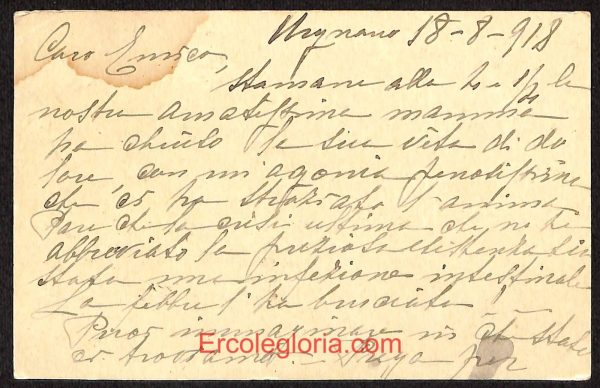 Urgnano 18-8-918
Caro Enrico,
Stamane alle 4 e 1/2 la
nostra amatissima mamma
ha chiuso la sua vita di do
lore, con un'agonia penosissima
che ci ha straziato l'anima
Pare che la crisi ultima che ne ha
abbreviato la preziosa esistenza sia
stata una infezione intestinale
La febbre l'ha bruciata
Puoi immaginare in che stato
ci troviamo. - Prega per
Ercolegloria.com